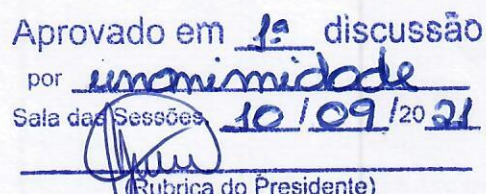 Aprovado em 1ª discussão
por unanimidade
Sala das Sessões, 10 / 09 /20 21
(Rubrica do Presidente)